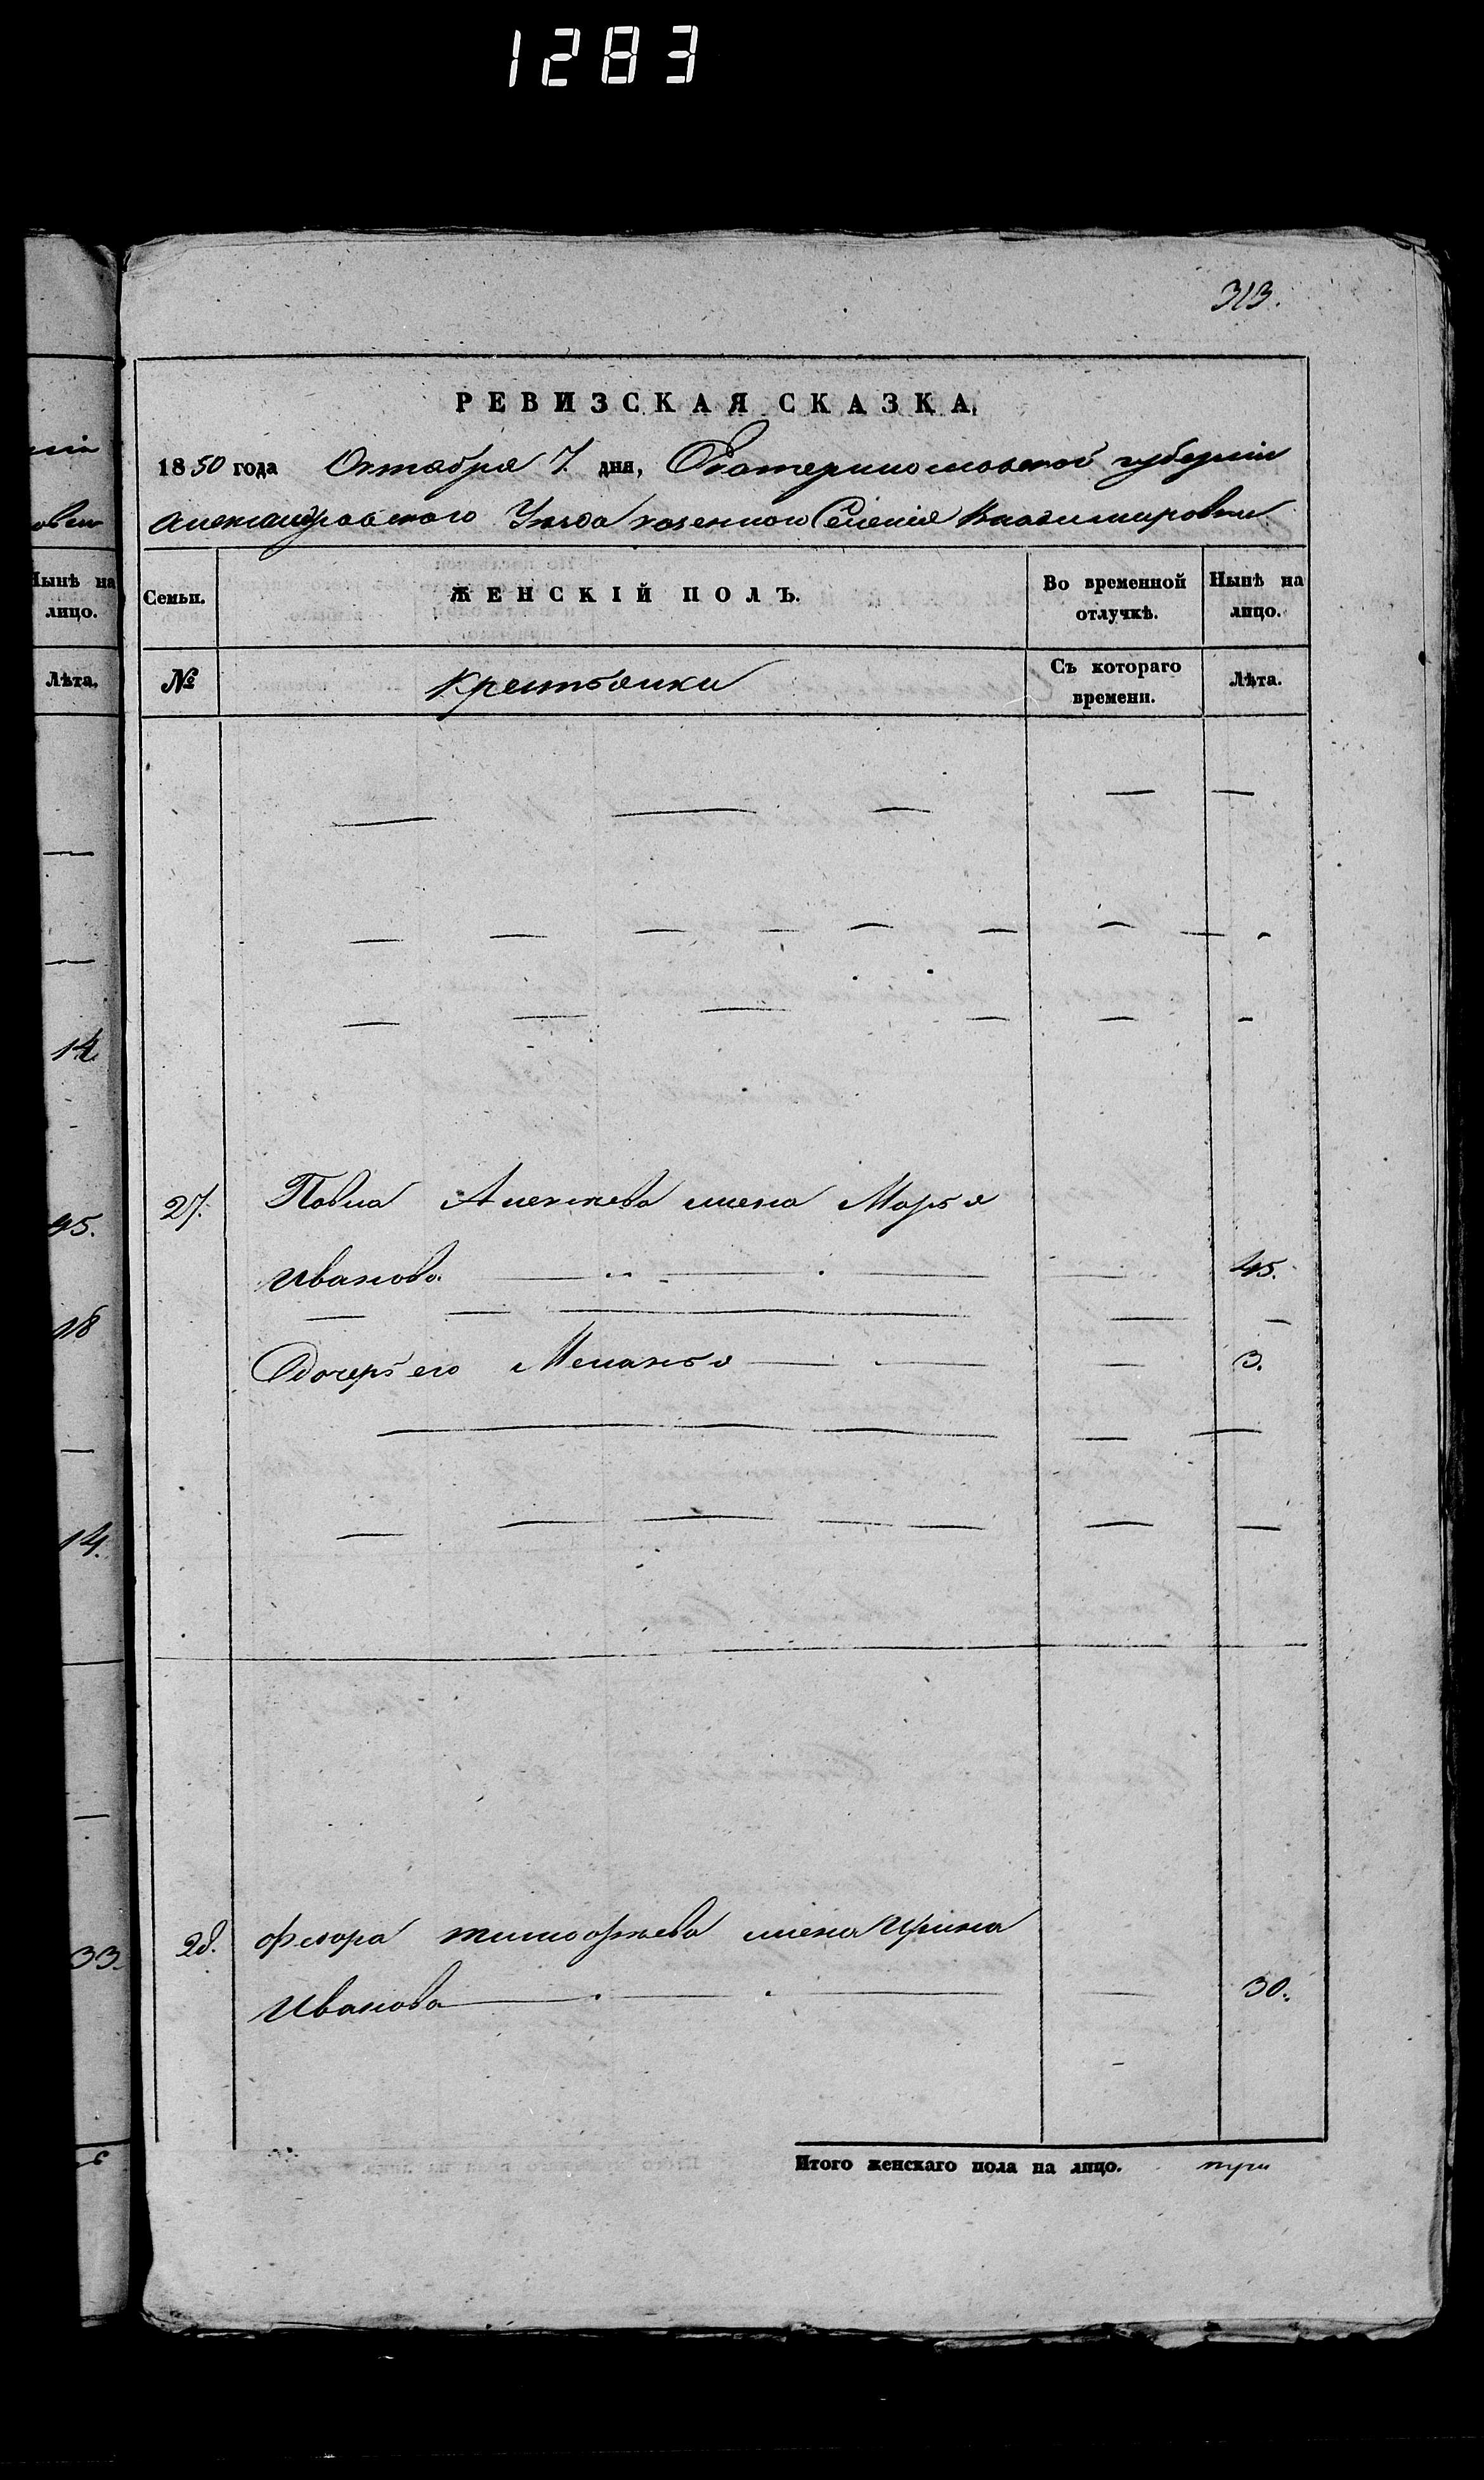 1283
313.
РЕВИЗСКАЯ СКАЗКА,
1850 года Октября 7. дня, Екатеринославской губерніи
Александровского Уезда казенного Селенія Владимировки
Нынѣ на лицо.
Лѣта.
14
45.
18
14.
33.
Семьи.
ЖЕНСКІЙ ПОЛЪ.
Во временной отлучкѣ.
Нынѣ на лицо.
№
Крестьянки
Съ котораго времени.
Лѣта.
27. Павла Алексѣева жена Марья
Иванова. 45.
Дочерь его Меланья 3.
28. Федора тимофѣева жена Ирина
Иванова 30.
Итого женскаго пола на лицо. три